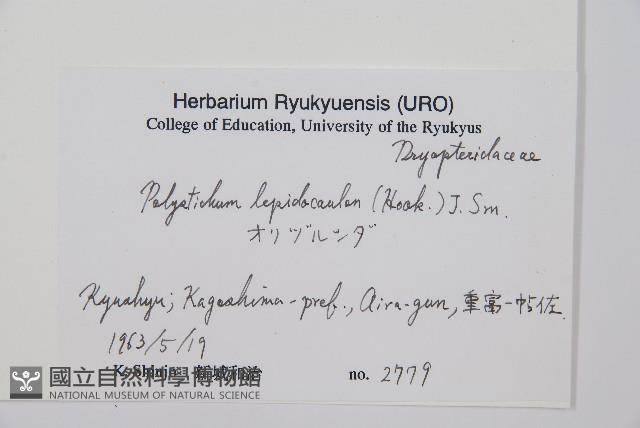 Herbarium Ryukyuensis (URO)
College of Education, University of the Ryukyus
Dryopteridaceae
Polystichum lepidocaulon (Hook.) J. Sm.
オリヅルシダ
Kyushyu; Kagoshima-pref., Aira-gun, 重富-帖佐
1963/5/19
K. Shinjo 新城和治 no. 2779
國立自然科學博物館
NATIONAL MUSEUM OF NATURAL SCIENCE